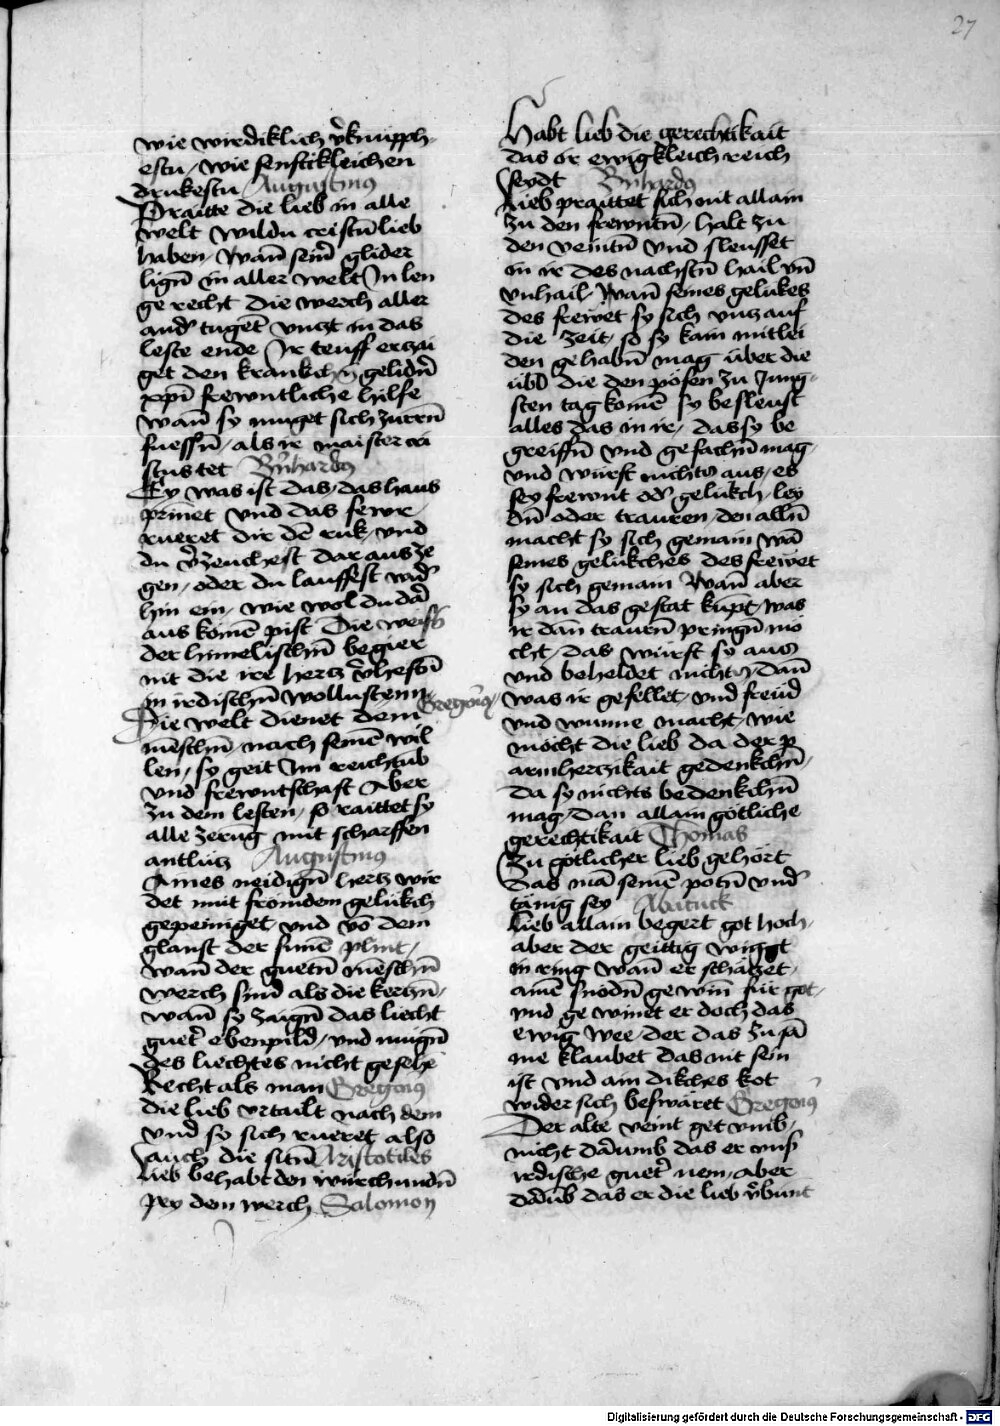 27
wie wirdiklich v̉knüpph
estu / wie senftikleichen
drukestu Augustinus
Praitte die lieb in alle
welt wildu cristūlieb
haben / Wañ seiñ glider
ligñ in aller welt In len
ge recht die werch aller
and̉ tugēt vnczt in das
leste ende Ir teuff erczai
get den krankchñ gelidñ
xp̄i frewntliche hilfe
wañ sy muget sich zurrñ
fuessñ / als ir maister cri
stus tet Bñhardꝰ
Ey was ist das / das haus
prinet vnd das fewr
rueret dir dē ruk / vnd
du v̉zeuchest dar aus ze
gen / oder du lauffest wid̉
hin ein / wie wol du dar̉
aus komē pist Die weish
der himelischñ begier
nit die ire hertz v̉lhestñ
in irdischñ wollustenn Gregoriꝰ
Die welt dienet dem
mēschñ / nach seinē wil
len / sy geit Im reichtūb
vnd frewntschaft Aber
zu dem lesten / so raittet sy
alle zerūg mit scharffen
antlütz Augustinus
Aines neidigñ hertz wir
det mit fromdem gelükch
gepeiniget / vnd vō dem
glanst der sunē plint /
wañ der guetñ mēschñ
werch sind als die kerczñ /
wañ sy zaigñ das liecht
guet̉ ebenpild / vnd mugñ
des liechtes nicht gesehē
Recht als man Gregorius
die lieb vrtailt nach dem
vnd so sich rueret also
auch die sitñ Aristotiles
Lieb behabt den würchundñ
pey dem werch Salomon
Habt lieb die gerechtikait
das ir ewigkleich reich
seydt Bñhardꝰ
Lieb praittet sich nit allain
zu den frewntñ / halt zu
den veintñ vnd sleusset
in ir des nachstñ hail vñ
vnhail / Wañ seines gelükes
des frewet sy sich vntz auf
die zeit / so sy kain mitlei
den gehabñ mag über die
übl die den pösen zu Jung
sten tag komē sy besleust
alles das in ir / das sy be
greiffñ vnd gefachñ mag /
vnd wurft nichts aus / es
sey frewnt od̉ gelükch / ley
dñ oder trauren / den allñ
macht sy sich gemain wā
seines gelükches des frewet
sy sich gemain Wañ aber
sy an das gestat kupt / was
ir dañ traurñ pringñ mö
cht / das wurft sy aus
vnd beheldet nichts / dañ
was ir gefellet / vnd freüd
vnd wunne macht / wie
möcht die lieb da der p
armherczikait gedenkchñ /
da sy nichts bedenkchñ
mag / dan allain götliche
gerechtikait Thomas
Zu götlicher lieb gehört
das mā seinē potñ vnd̉
tānig sey Abacuck
Lieb allain begert got hoch /
aber der geittig wiggt
in ring wañ er schätzet /
ainē snödñ gewiñ für got /
vnd gewinet er doch das
ewig wee / der das zu sā
me klaubet das nit sein
ist vnd ain dikches kot
wider sich beswäret Gregoriꝰ
Der alte veint get vmb /
nicht dar̉umb das er vnß
irdische guet̉ nem / aber
dar̉ūb das er die lieb v̉bünt
Digitalisierung gefördert durch die Deutsche Forschungsgemeinschaft - DFG